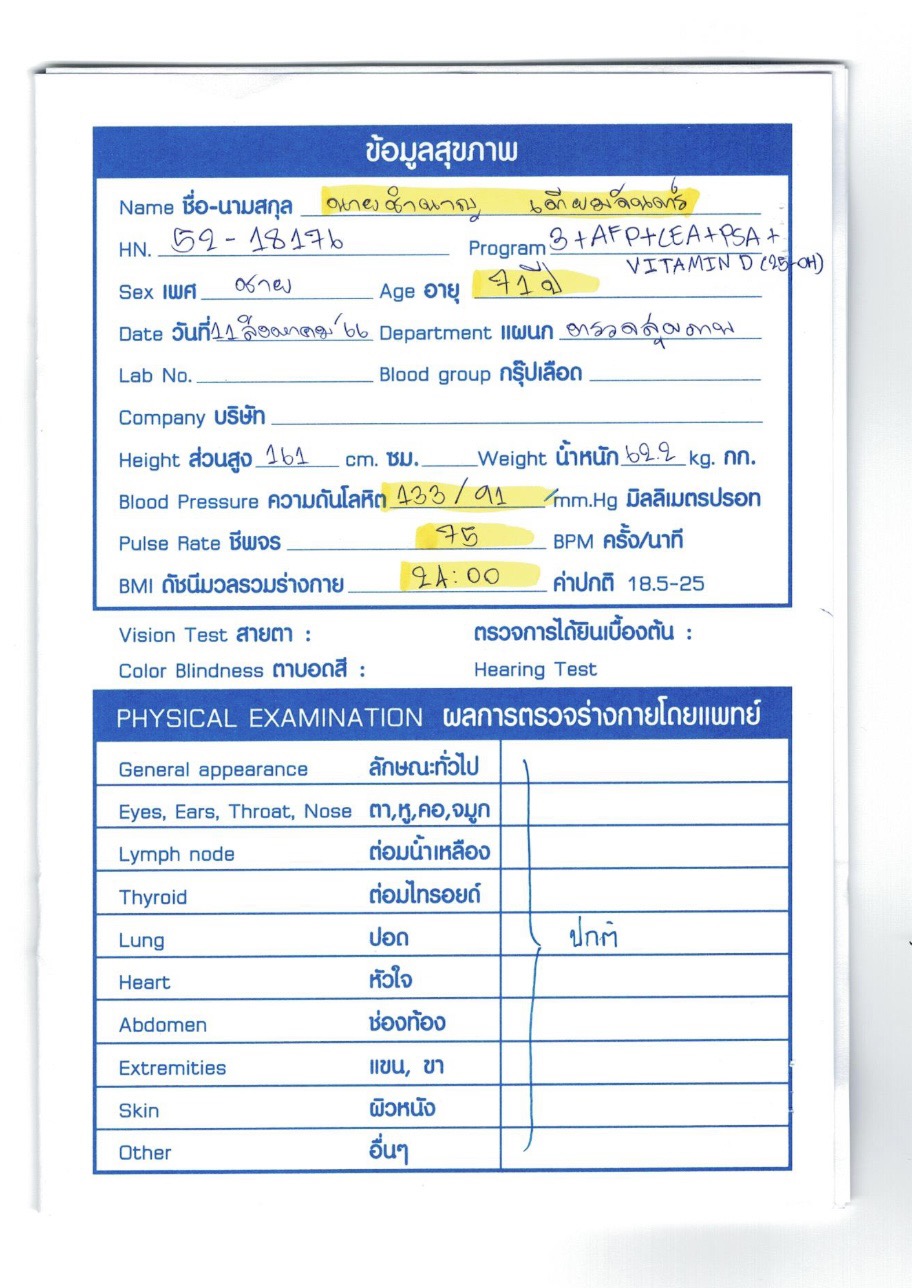 ข้อมูลสุขภาพ
Name ชื่อ-นามสกุล นายชำนาญ
HN. 52-18176 Program 3+AFP+CEA+PSA+
VITAMIN D (25-OH)
Sex เพศ ชาย Age อายุ 71 ปี
Date วันที่ 11 สิงหาคม 66 Department แผนก ตรวจสุขภาพ
Lab No. Blood group กรุ๊ปเลือด
Company บริษัท
Height ส่วนสูง 161 cm. ซม. Weight น้ำหนัก 62.2 kg. กก.
Blood Pressure ความดันโลหิต 133/91 mm.Hg มิลลิเมตรปรอท
Pulse Rate ชีพจร 75 BPM ครั้ง/นาที
BMI ดัชนีมวลรวมร่างกาย 24:00 ค่าปกติ 18.5-25
Vision Test สายตา : ตรวจการได้ยินเบื้องต้น :
Color Blindness ตาบอดสี : Hearing Test
PHYSICAL EXAMINATION ผลการตรวจร่างกายโดยแพทย์
General appearance ลักษณะทั่วไป
Eyes, Ears, Throat, Nose ตา,หู,คอ,จมูก
Lymph node ต่อมน้ำเหลือง
Thyroid ต่อมไทรอยด์
Lung ปอด ปกติ
Heart หัวใจ
Abdomen ช่องท้อง
Extremities แขน, ขา
Skin ผิวหนัง
Other อื่นๆ